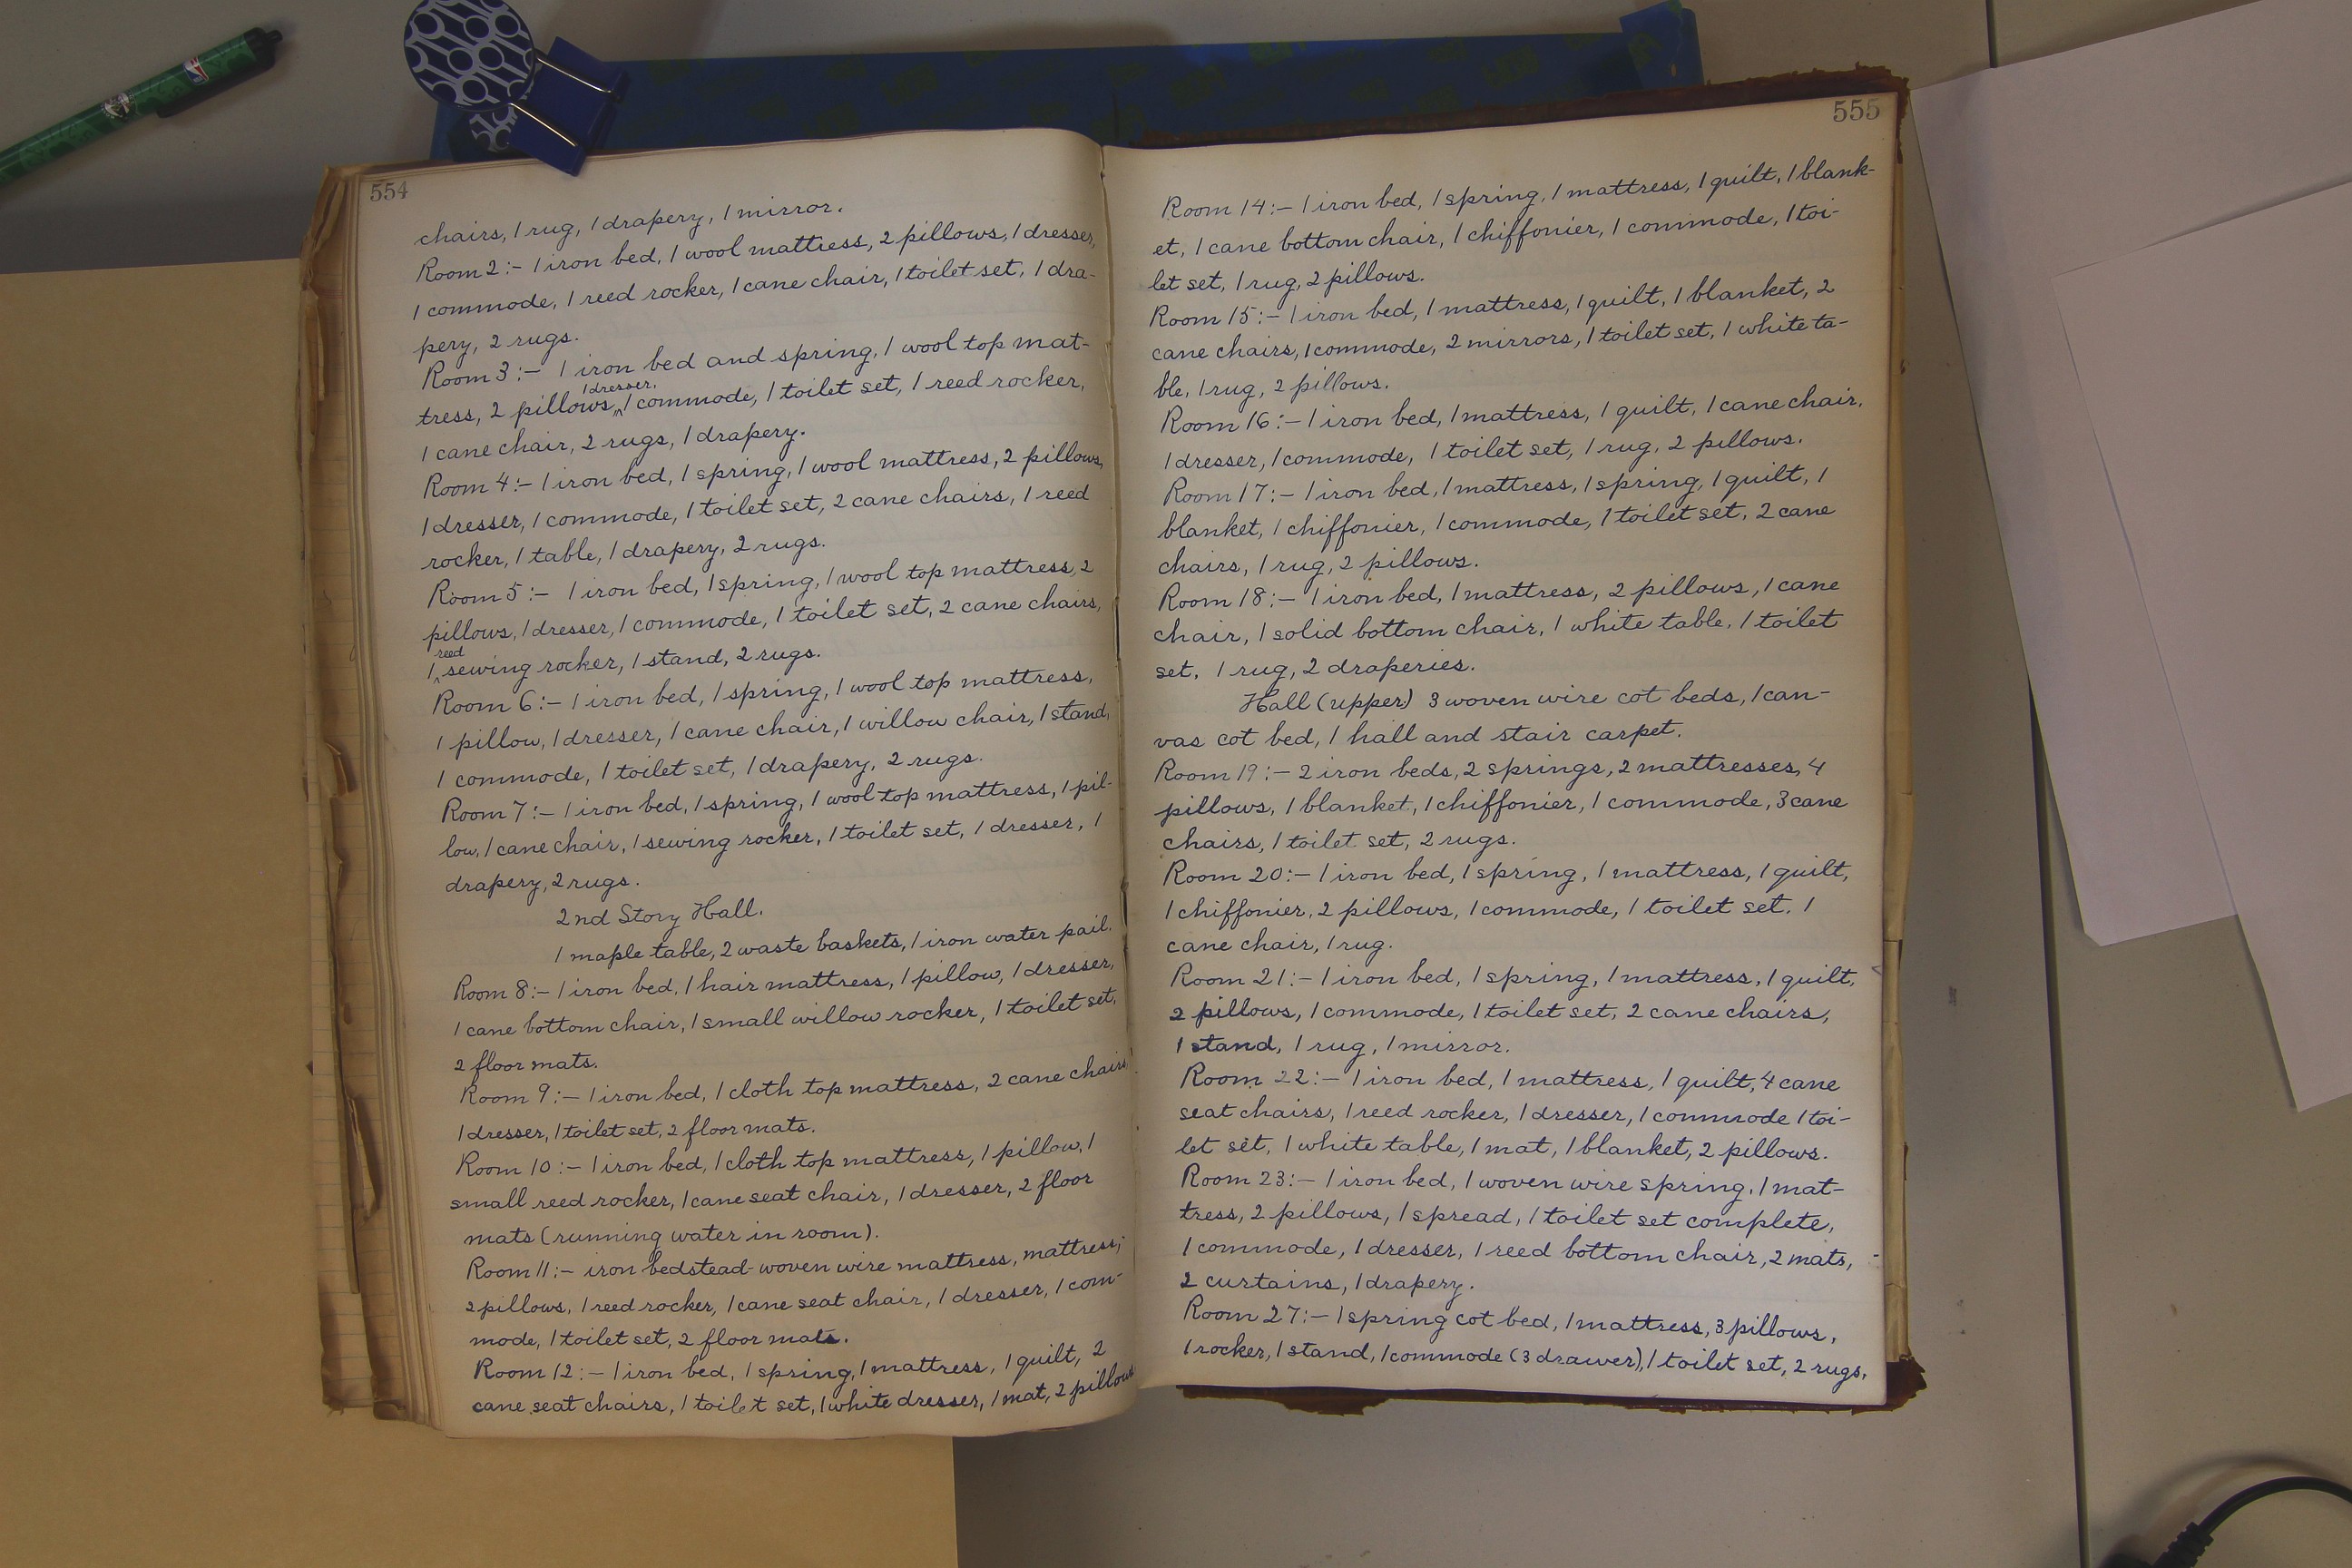 554
chairs, 1 rug, 1 drapery, 1 mirror.
Room 2:- 1 iron bed, 1 wool mattress, 2 pillows, 1 dresser,
1 commode, 1 reed rocker, 1 cane chair, 1 toilet set, 1 dra-
pery, 2 rugs.
Room 3:- 1 iron bed and spring, 1 wool top mat-
1 dresser,
tress, 2 pillows, ^ 1 commode, 1 toilet set, 1 reed rocker,
1 cane chair, 2 rugs, 1 drapery.
Room 4:- 1 iron bed, 1 spring, 1 wool mattress, 2 pillows,
1 dresser, 1 commode, 1 toilet set, 2 cane chairs, 1 reed
rocker, 1 table, 1 drapery, 2 rugs.
Room 5:- 1 iron bed, 1 spring, 1 wool top mattress, 2
pillows, 1 dresser, 1 commode, 1 toilet set, 2 cane chairs,
reed
1 ^ sewing rocker, 1 stand, 2 rugs.
Room 6:- 1 iron bed, 1 spring, 1 wool top mattress,
1 pillow, 1 dresser, 1 cane chair, 1 willow chair, 1 stand,
1 commode, 1 toilet set, 1 drapery, 2 rugs.
Room 7:- 1 iron bed, 1 spring, 1 wool top mattress, 1 pil-
low, 1 cane chair, 1 sewing rocker, 1 toilet set, 1 dresser, 1
drapery, 2 rugs.
2nd Story Hall.
1 maple table, 2 waste baskets, 1 iron water pail.
Room 8:- 1 iron bed, 1 hair mattress, 1 pillow, 1 dresser,
1 cane bottom chair, 1 small willow rocker, 1 toilet set,
2 floor mats.
Room 9:- 1 iron bed, 1 cloth top mattress, 2 cane chairs,
1 dresser, 1 toilet set, 2 floor mats.
Room 10:- 1 iron bed, 1 cloth top mattress, 1 pillow, 1
small reed rocker, 1 cane seat chair, 1 dresser, 2 floor
mats (running water in room).
Room 11:- iron bedstead-woven wire mattress, mattress,
2 pillows, 1 reed rocker, 1 cane seat chair, 1 dresser, 1 com-
mode, 1 toilet set, 2 floor mats.
Room 12:- 1 iron bed, 1 spring, 1 mattress, 1 quilt, 2
cane seat chairs, 1 toilet set, 1 white dresser, 1 mat, 2 pillows
555
Room 14:- 1 iron bed, 1 spring, 1 mattress, 1 quilt, 1 blank-
et, 1 cane bottom chair, 1 chiffonier, 1 commode, 1 toi-
let set, 1 rug, 2 pillows.
Room 15:- 1 iron bed, 1 mattress, 1 quilt, 1 blanket, 2
cane chairs, 1 commode, 2 mirrors, 1 toilet set, 1 white ta-
ble, 1 rug, 2 pillows.
Room 16:- 1 iron bed, 1 mattress, 1 quilt, 1 cane chair,
1 dresser, 1 commode, 1 toilet set, 1 rug, 2 pillows.
Room 17:- 1 iron bed, 1 mattress, 1 spring, 1 quilt, 1
blanket, 1 chiffonier, 1 commode, 1 toilet set, 2 cane
chairs, 1 rug, 2 pillows.
Room 18:- 1 iron bed, 1 mattress, 2 pillows, 1 cane
chair, 1 solid bottom chair, 1 white table, 1 toilet
set, 1 rug, 2 draperies.
Hall (upper) 3 woven wire cot beds, 1 can-
vas cot bed, 1 hall and stair carpet.
Room 19:- 2 iron beds, 2 springs, 2 mattresses, 4
pillows, 1 blanket, 1 chiffonier, 1 commode, 3 cane
chairs, 1 toilet set, 2 rugs.
Room 20:- 1 iron bed, 1 spring, 1 mattress, 1 quilt,
1 chiffonier, 2 pillows, 1 commode, 1 toilet set, 1
cane chair, 1 rug.
Room 21:- 1 iron bed, 1 spring, 1 mattress, 1 quilt,
2 pillows, 1 commode, 1 toilet set, 2 cane chairs,
1 stand, 1 rug, 1 mirror.
Room 22:- 1 iron bed, 1 mattress, 1 quilt, 4 cane
seat chairs, 1 reed rocker, 1 dresser, 1 commode 1 toi-
let set, 1 white table, 1 mat, 1 blanket, 2 pillows.
Room 23:- 1 iron bed, 1 woven wire spring, 1 mat-
tress, 2 pillows, 1 spread, 1 toilet set complete,
1 commode, 1 dresser, 1 reed bottom chair, 2 mats,
2 curtains, 1 drapery.
Room 27:- 1 spring cot bed, 1 mattress, 3 pillows,
1 rocker, 1 stand, 1 commode (3 drawer), 1 toilet set, 2 rugs,